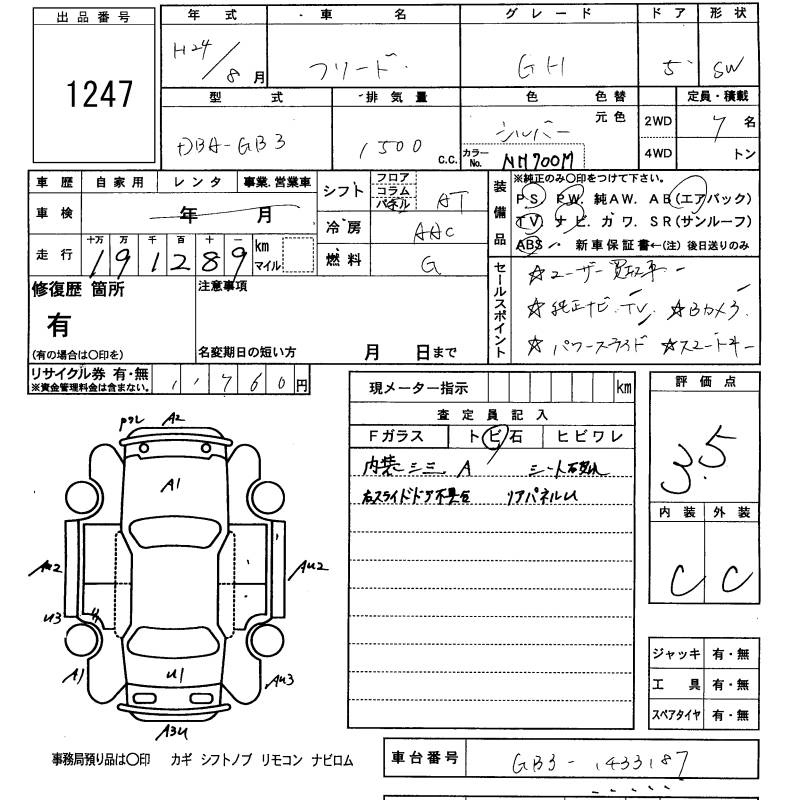 出品番号
1247
年式 車名 グレード ドア 形状
H24/8月 フリード GH 5 SW
型式 排気量 色 色替 定員・積載
DBA-GB3 1500 C.C. シルバー 元色 2WD 7名
カラーNo. NH700M 4WD トン
車歴 自家用 レンタ 事業.営業車
車検 年 月
走行 十万 万 千 百 十 一
191289 km マイル
シフト フロア コラム パネル AT
冷房 AAC
燃料 G
装備品 ※純正のみ〇印をつけて下さい。
PS PW. 純AW. AB(エアバック)
TV ナビ. カワ. SR(サンルーフ)
ABS 新車保証書←(注)後日送りのみ
セールスポイント
☆ユーザー買取車
☆純正ナビ.TV. ☆Bカメラ
☆パワースライド ☆スマートキー
修復歴 箇所
有
(有の場合は〇印を)
注意事項
名変期日の短い方 月 日まで
リサイクル券 有・無
※資金管理料金は含まない。
11760円
現メーター指示 km
査定員記入
Fガラス トビ石 ヒビワレ
内装シミ. A
右スライドドア不具合 リアパネルU
評価点
3.5
内装 外装
C C
A2
A1
AU2 AU2
U3
A1 U1 AU3
A3U
ジャッキ 有・無
工具 有・無
スペアタイヤ 有・無
事務局預り品は〇印 カギ シフトノブ リモコン ナビロム
車台番号 GB3-1433187